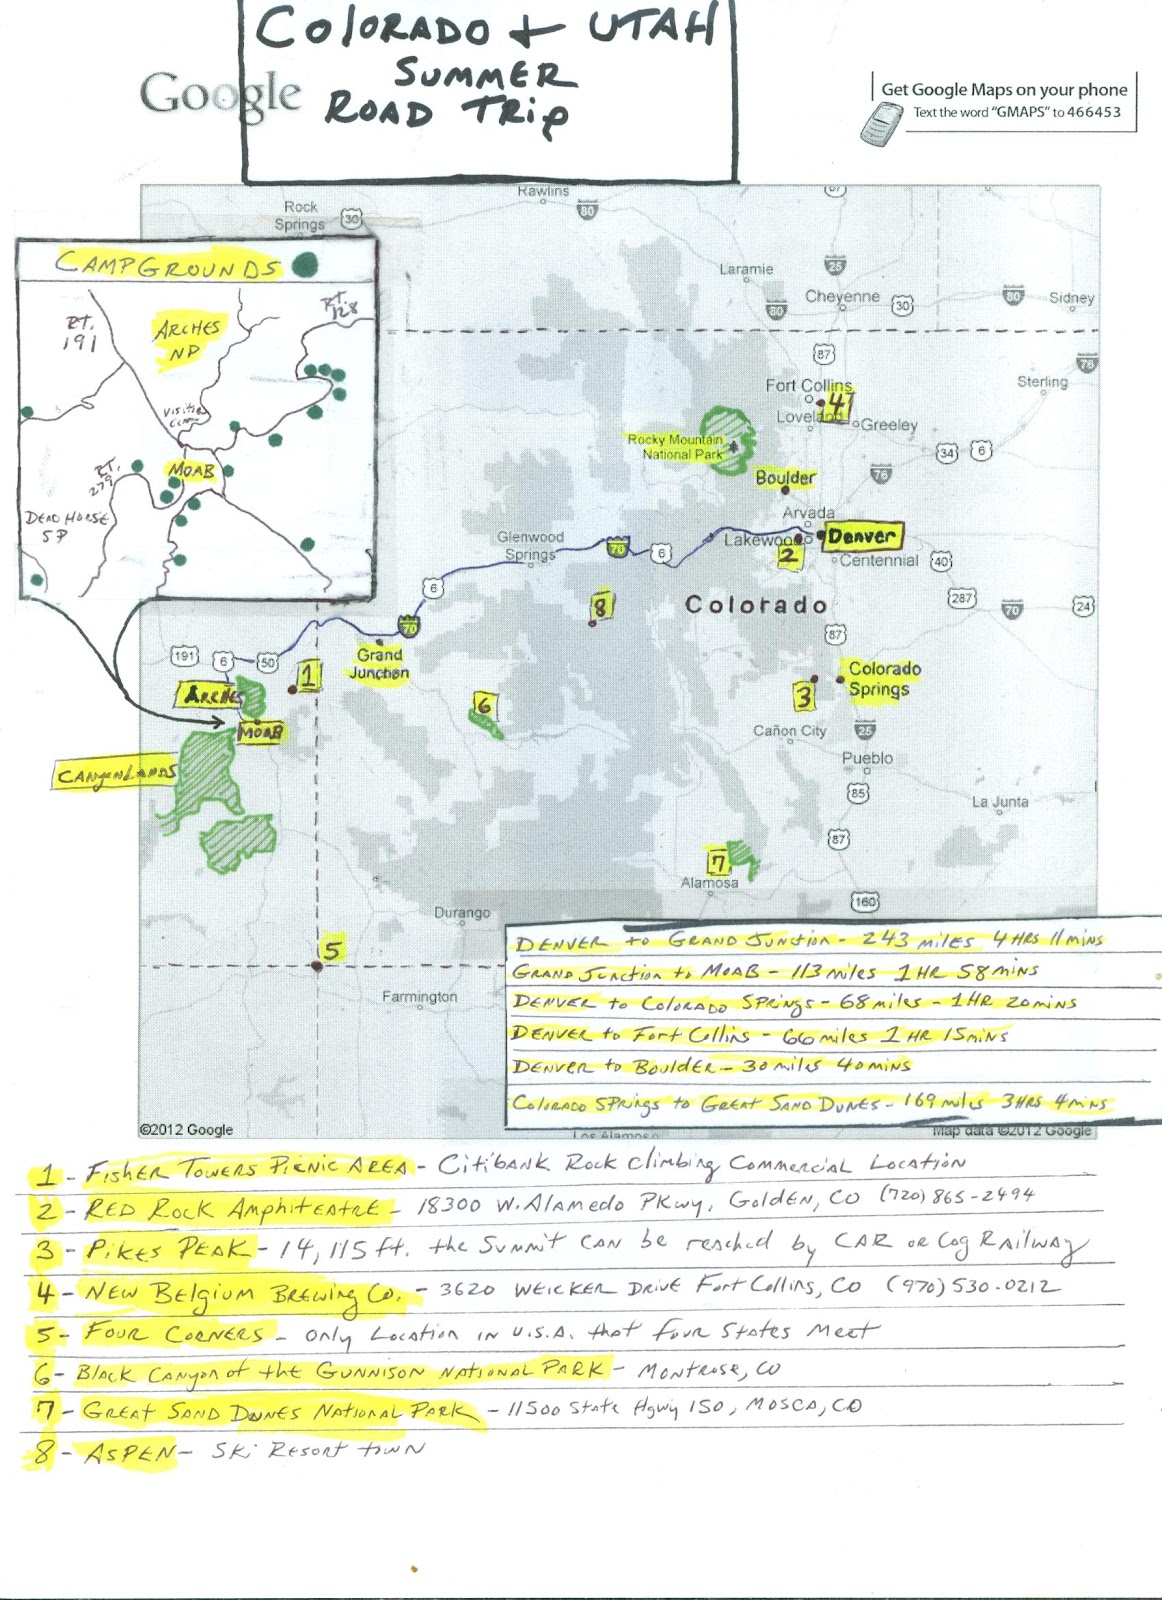 COlORADO + UTAH
SUMMER
ROAD TRip
Google
Get Google Maps on your phone
Text the word "GMAPS" to 466453
Rawlins
Rock
Springs
30
80
87
Laramie
25
Cheyenne
30
80
Sidney
80
CAMPGROUNDS
RT.
191
ARCHES
NP
RT.
128
MOAB
RT.
279
DEAD HORSE
SP
87
76
Fort Collins
4
Sterling
Loveland
Greeley
Rocky Mountain
National Park
34
6
Boulder
76
Arvada
Lakewood
Denver
2
Centennial
40
Glenwood
Springs
70
6
6
8
Colorado
287
70
24
70
87
191
6
50
Grand
Junction
1
Colorado
Springs
ARCHES
6
3
MOAB
Cañon City
25
CANYONLANDS
Pueblo
85
La Junta
87
7
Alamosa
160
Durango
5
Farmington
DENVER to GRAND Junction - 243 miles 4 HRS 11 mins
GRAND Junction to MOAB - 113 miles 1 HR 58 mins
DENVER to COLORADO SPRINGS - 68 miles - 1 HR 20 mins
DENVER to Fort Collins - 66 miles 1 HR 15 mins
DENVER to BOULDER - 30 miles 40 mins
COLORADO SPRINGS to GREAT SAND DUNES - 169 miles 3 HRS 4 mins
©2012 Google
Los Alamos
Map data ©2012 Google
1 - FISHER TOWERS PICNIC AREA - CITIBANK ROCK climbing COMMERCIAL LOCATION
2 - RED ROCK AMPHITEATRE - 18300 W. Alamedo PKwy, GOLDEN, CO (720) 865-2494
3 - PIKES PEAK - 14,115 ft. the SUMMIT CAN be reached by CAR or Cog RAILWAY
4 - NEW BELGIUM BREWING CO. - 3620 WEICKER DRIVE Fort Collins, CO (970) 530-0212
5 - FOUR CORNERS - ONLY LOCATION IN U.S.A. that four STATES MEET
6 - BLACK CANYON of the GUNNISON NATIONAL PARK - MONTROSE, CO
7 - GREAT SAND DUNES NATIONAL PARK - 11500 State Hgwy 150, MOSCA, CO
8 - ASPEN - SKi RESORT TOWN